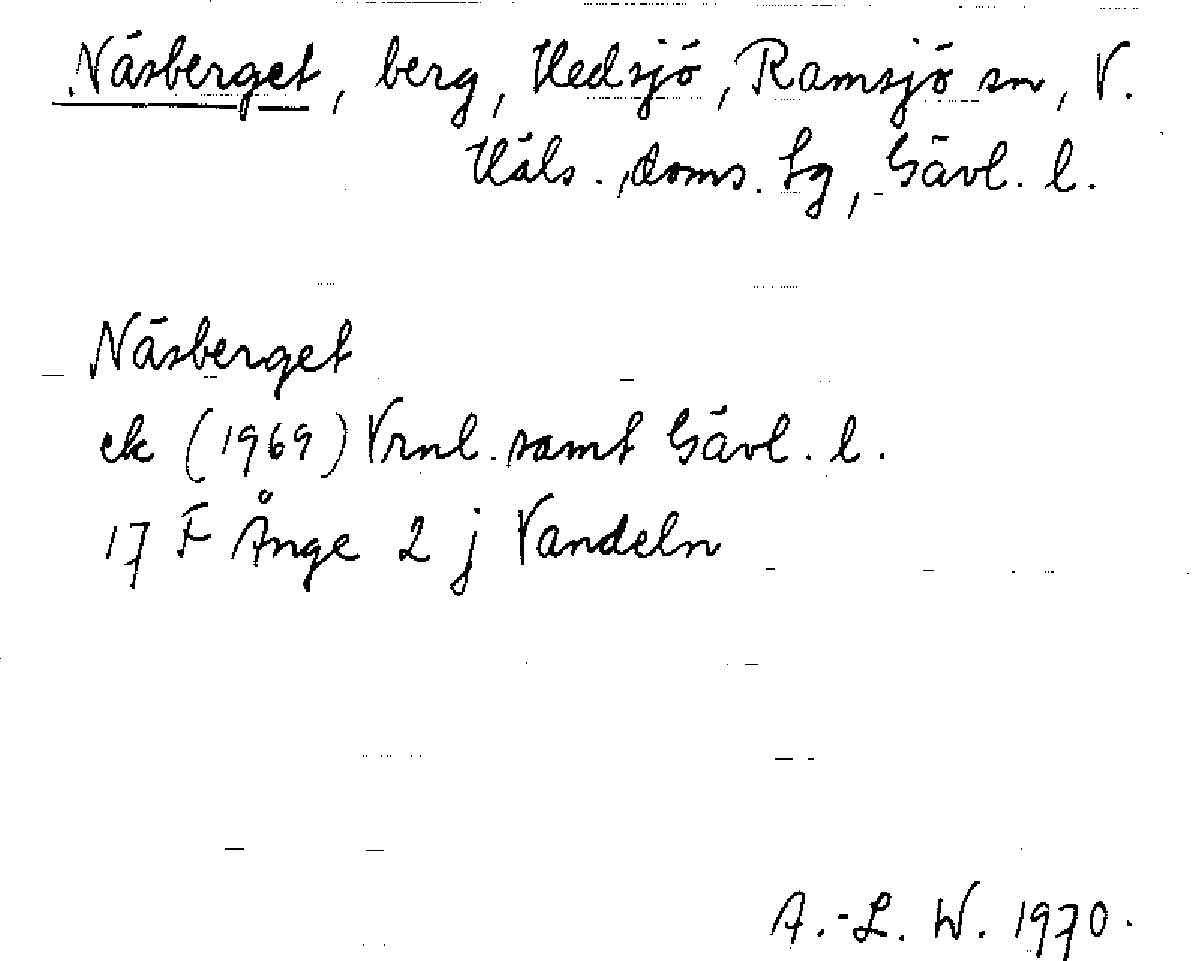 Näsberget, berg, Hedsjö, Ramsjö sn, V.
Häls. doms. sg, Gävl. l.
Näsberget
ek (1969) Vrnl. samt Gävl. l.
17 F Ånge 2 j Vandeln
A.-L. W. 1970.